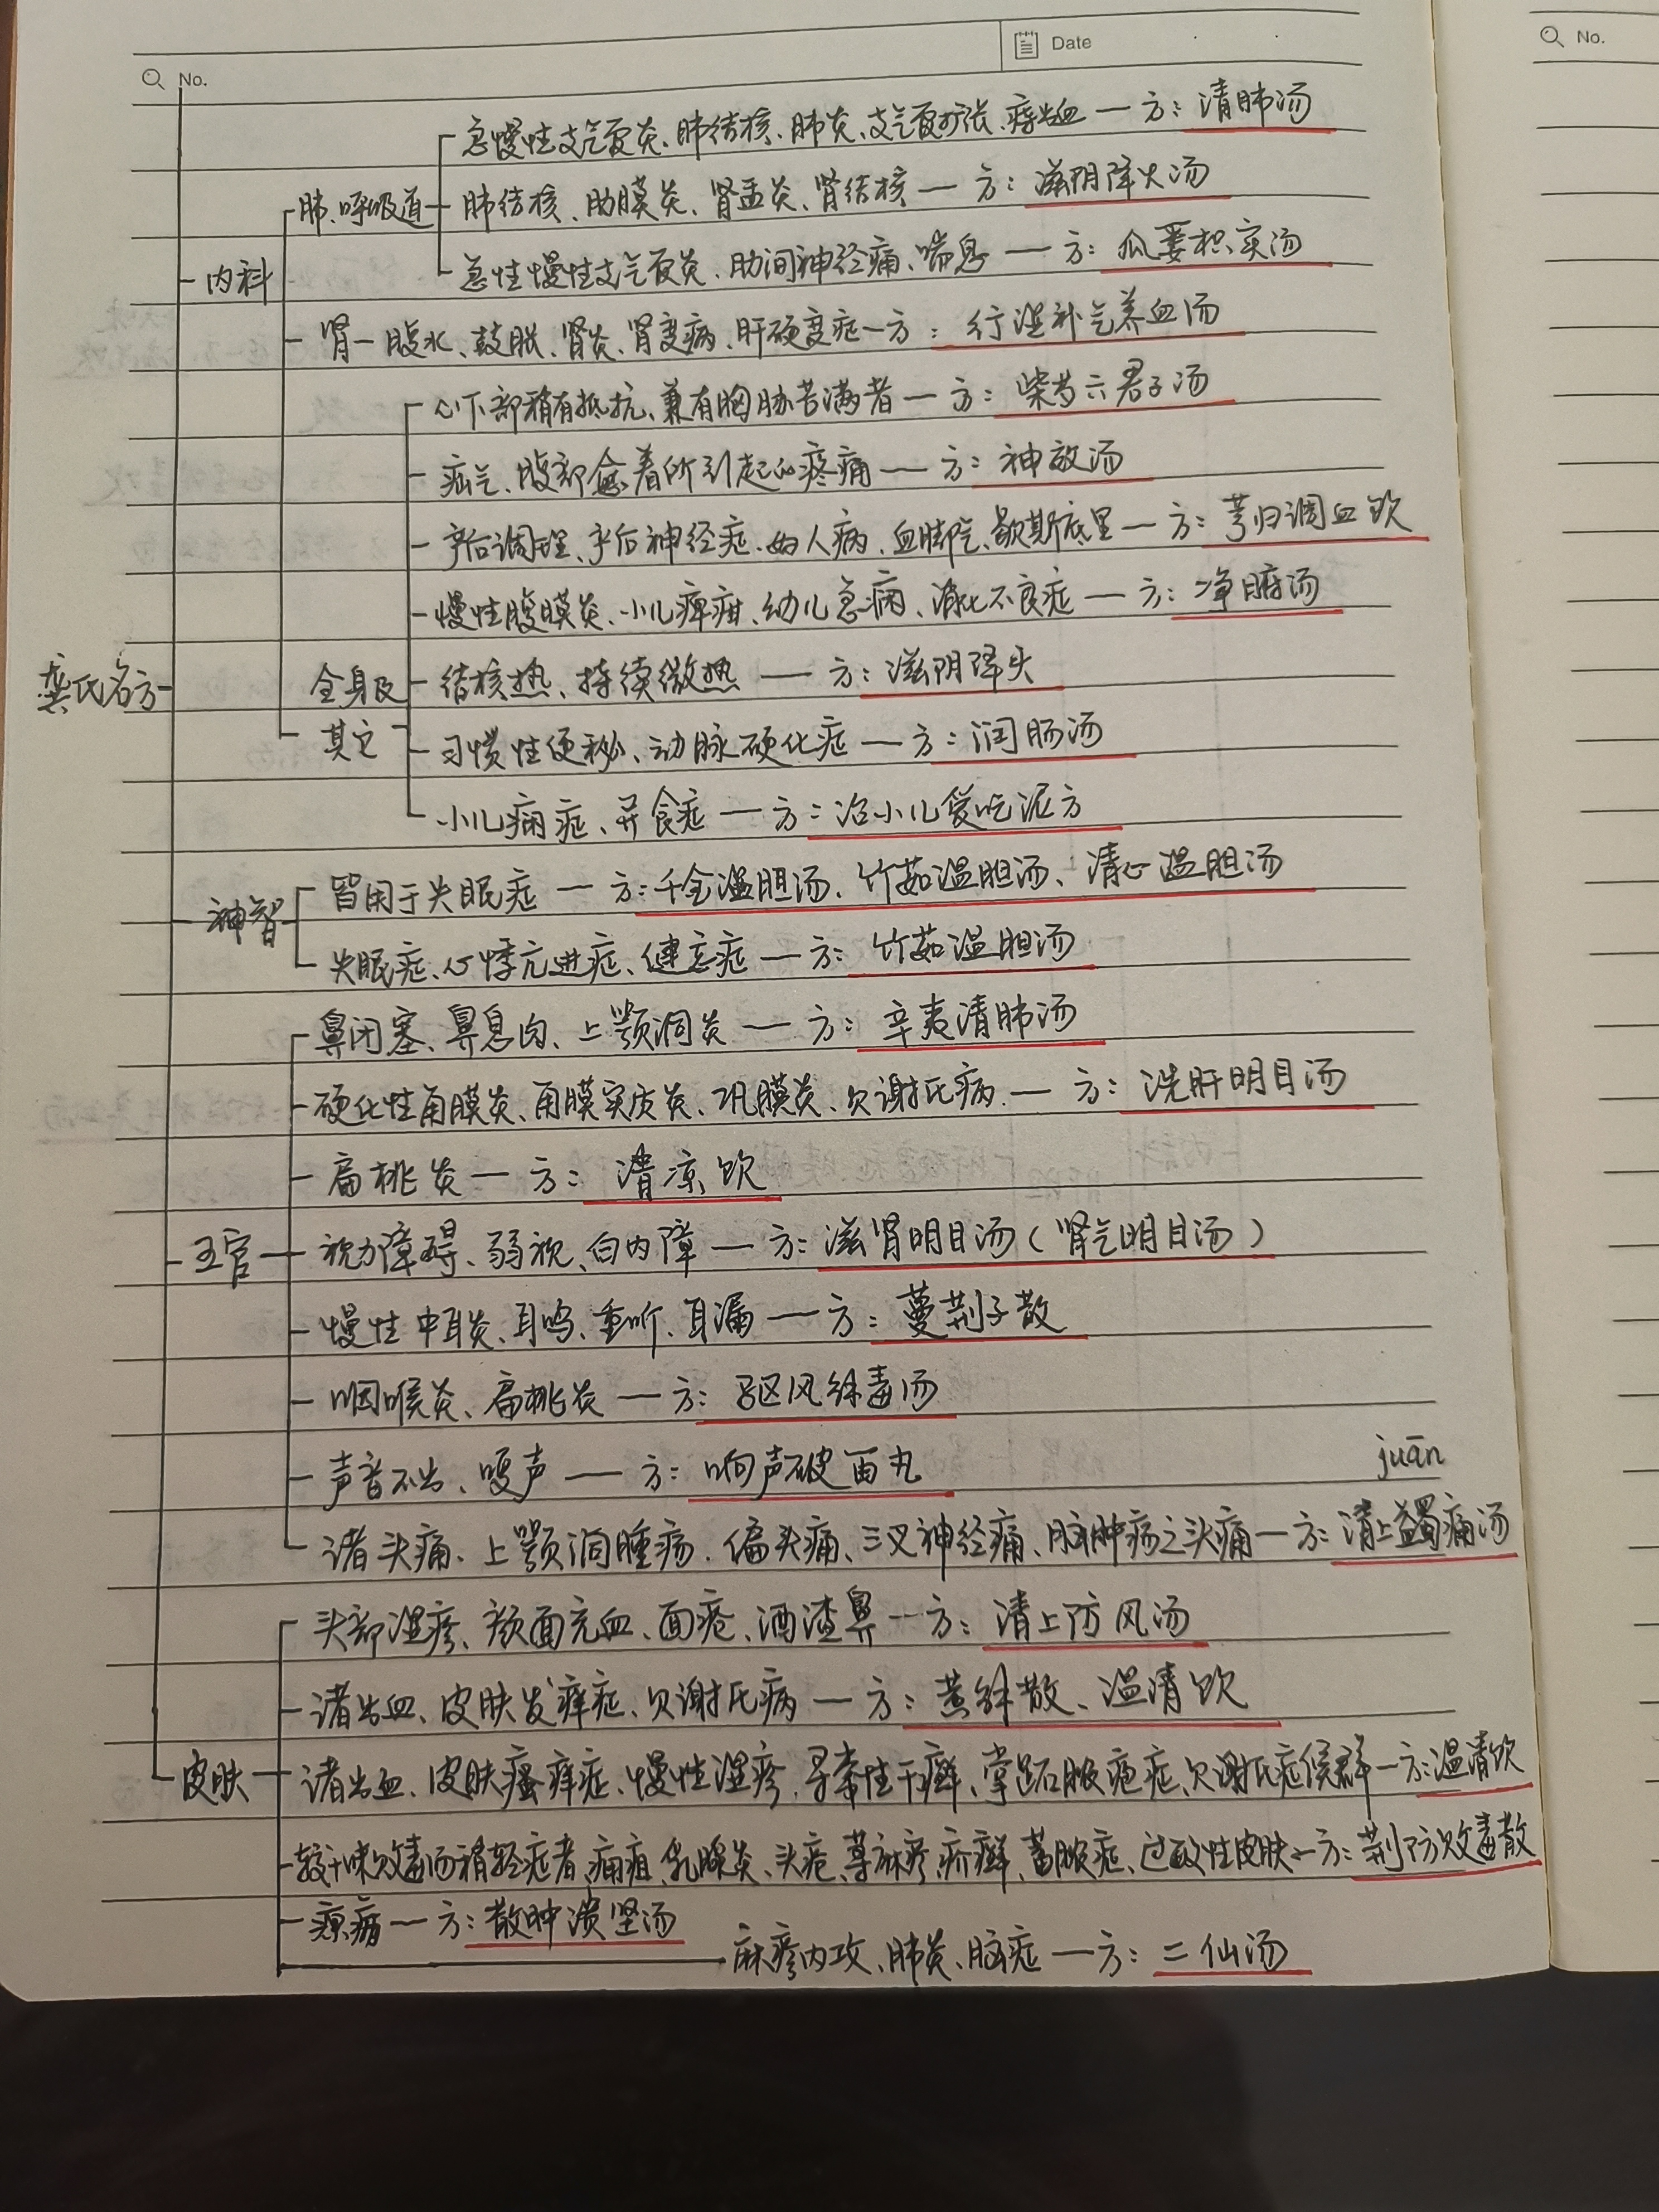 No.
Date
No.
急慢性支气管炎、肺结核、肺炎、支气管扩张、痔出血 — 方：清肺汤
肺、呼吸道
肺结核、肋膜炎、肾盂炎、肾结核 — 方：滋阴降火汤
内科
急性慢性支气管炎、肋间神经痛、喘息 — 方：瓜蒌枳实汤
肾 — 腹水、鼓胀、肾炎、肾变病、肝硬变症 — 方：行湿补气养血汤
心下部稍有抵抗、兼有胸胁苦满者 — 方：柴芍六君子汤
疝气、腹部愈着所引起的疼痛 — 方：神效汤
产后调理、产后神经症、妇人病、血脚气、歇斯底里 — 方：芎归调血饮
慢性腹膜炎、小儿痞疳、幼儿急病、消化不良症 — 方：净腑汤
龚氏名方
全身及
其它
结核热、持续微热 — 方：滋阴降火
习惯性便秘、动脉硬化症 — 方：润肠汤
小儿痫症、异食症 — 方：治小儿爱吃泥方
神智
皆用于失眠症 — 方：千金温胆汤、竹茹温胆汤、清心温胆汤
失眠症、心悸亢进症、健忘症 — 方：竹茹温胆汤
鼻闭塞、鼻息肉、上颚洞炎 — 方：辛夷清肺汤
硬化性角膜炎、角膜实质炎、巩膜炎、欠谢氏病 — 方：洗肝明目汤
扁桃炎 — 方：清凉饮
五官
视力障碍、弱视、白内障 — 方：滋肾明目汤（肾气明目汤）
慢性中耳炎、耳鸣、重听、耳漏 — 方：蔓荆子散
咽喉炎、扁桃炎 — 方：驱风解毒汤
声音不出、嗄声 — 方：响声破笛丸
juān
诸头痛、上颚洞肿疡、偏头痛、三叉神经痛、脑肿疡之头痛 — 方：清上蠲痛汤
头部湿疹、颜面充血、面疮、酒渣鼻 — 方：清上防风汤
诸出血、皮肤发痒症、欠谢氏病 — 方：黄解散、温清饮
皮肤
诸出血、皮肤瘙痒症、慢性湿疹、寻常性干癣、掌跖脓疱症、欠谢氏症候群 — 方：温清饮
较十味败毒汤稍轻症者、痈疽、乳腺炎、头疮、荨麻疹、疥癣、蓄脓症、过敏性皮肤 — 方：荆防败毒散
瘰疬 — 方：散肿溃坚汤
麻疹内攻、肺炎、脑症 — 方：二仙汤